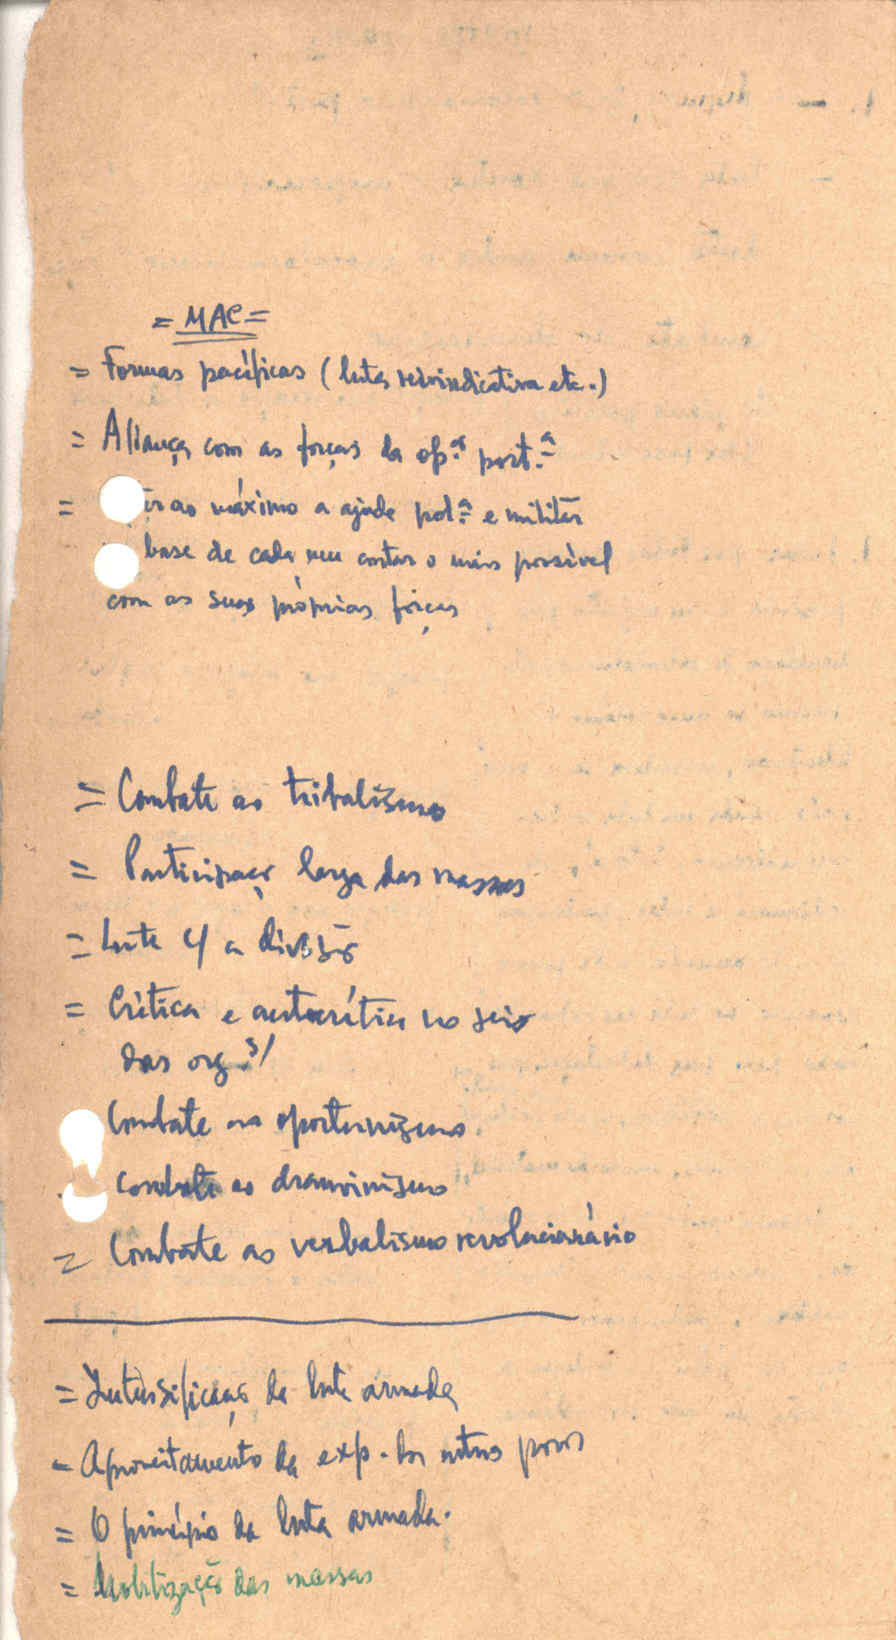 = MAC =
= Formas pacíficas (luta reivindicativa etc.)
= Aliança com as forças da op.ª port.ª
= ao máximo a ajuda pol.ª e militar
base de cada um contar o mais possível
com as suas próprias forças
= Combate ao tribalismo
= Participaç. larga das massas
= Luta c/ a divisão
= Crítica e autocrítica no seio
das org.s/
Combate ao oportunismo
Combate ao
= Combate ao verbalismo revolucionário
= Intensificaç. da luta armada
= Aproveitamento da exp. de outros povos
= O princípio da luta armada.
= Mobilização das massas